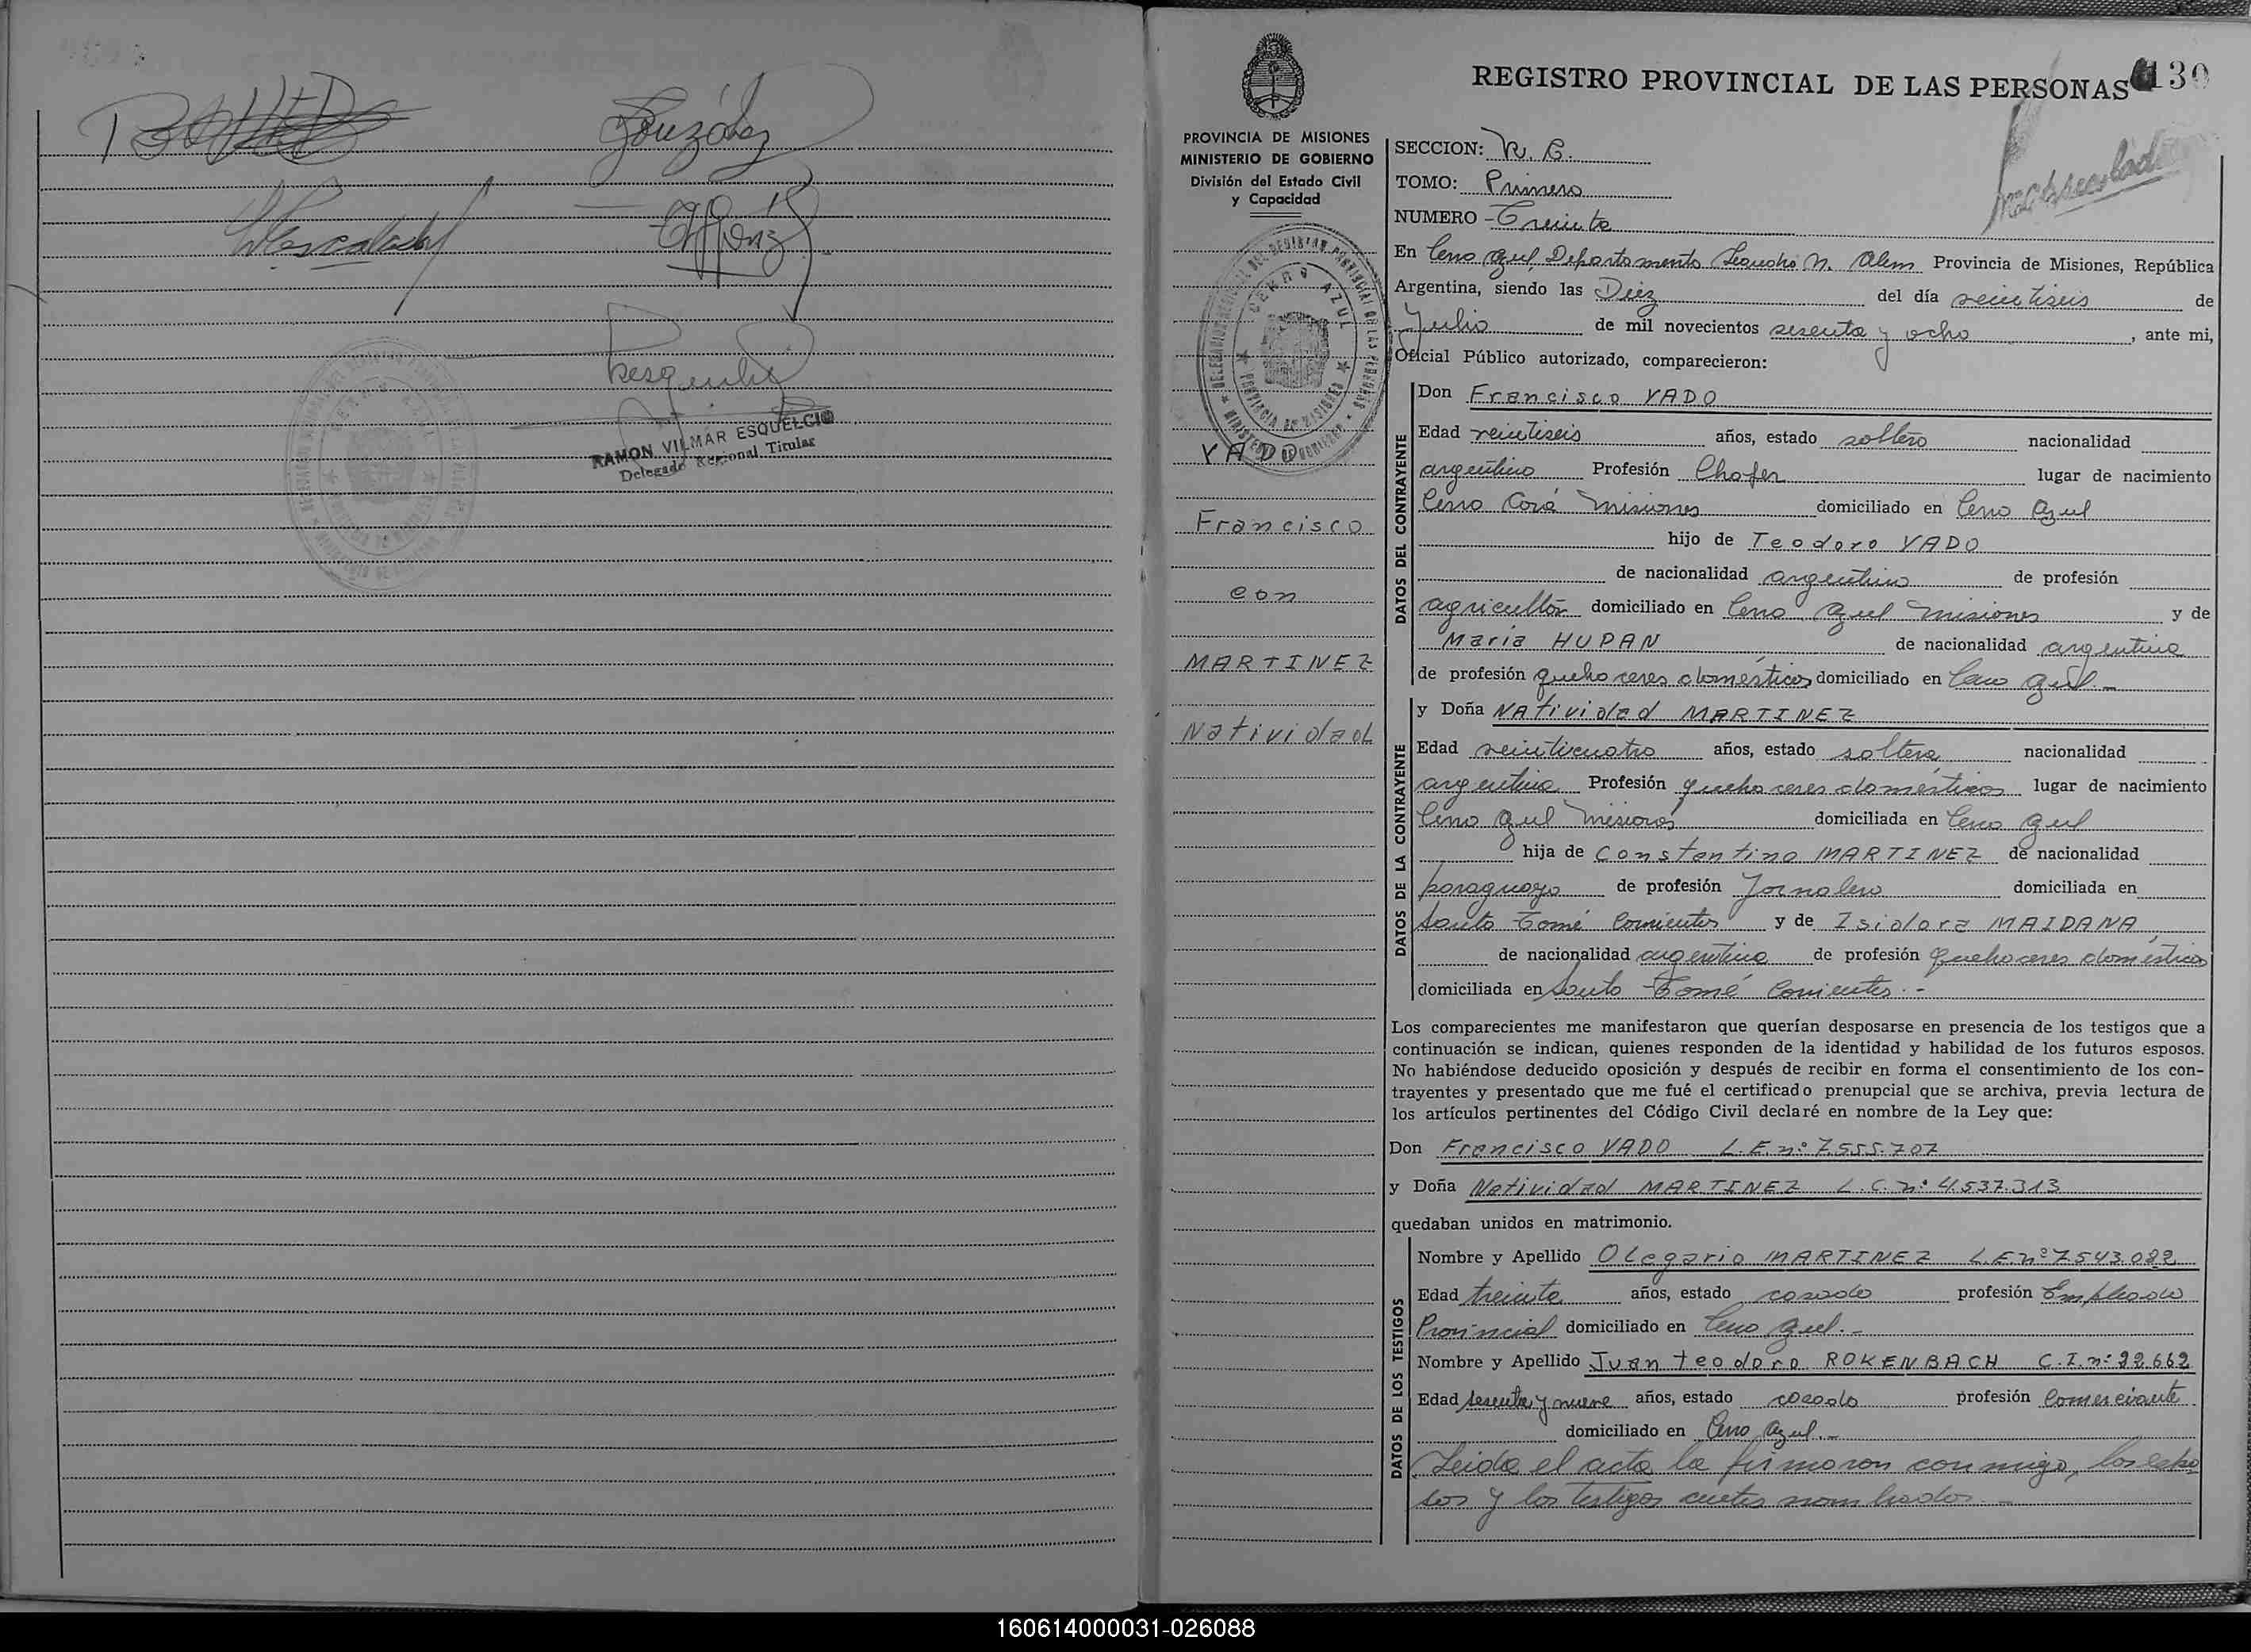 González
RAMON VILMAR ESQUELCIO
Delegado Regional Titular
REGISTRO PROVINCIAL DE LAS PERSONAS
130
PROVINCIA DE MISIONES
MINISTERIO DE GOBIERNO
División del Estado Civil
y Capacidad
CERRO AZUL
YADO
Francisco
con
MARTINEZ
Natividad
SECCION:
TOMO: Primero
NUMERO - Treinta
En Cerro Azul, Departamento Leandro N. Alem Provincia de Misiones, República
Argentina, siendo las Diez del día veintiseis de
Julio de mil novecientos sesenta y ocho, ante mi,
Oficial Público autorizado, comparecieron:
DATOS DEL CONTRAYENTE
Don Francisco YADO
Edad veintiseis años, estado soltero nacionalidad
argentino Profesión Chofer lugar de nacimiento
Cerro Corá Misiones domiciliado en Cerro Azul
hijo de Teodoro YADO
de nacionalidad argentino de profesión
agricultor domiciliado en Cerro Azul Misiones y de
Maria HUPAN de nacionalidad argentina
de profesión quehaceres domésticos domiciliado en Cerro Azul.-
DATOS DE LA CONTRAYENTE
y Doña NAtividad MARTINEZ
Edad veinticuatro años, estado soltera nacionalidad
argentina Profesión quehaceres domésticos lugar de nacimiento
Cerro Azul Misiones domiciliada en Cerro Azul
hija de Constantino MARTINEZ de nacionalidad
paraguayo de profesión Jornalero domiciliada en
Santo Tomé Corrientes y de Isidora MAIDANA,
de nacionalidad argentina de profesión quehaceres domésticos
domiciliada en Santo Tomé Corrientes.-
Los comparecientes me manifestaron que querían desposarse en presencia de los testigos que a
continuación se indican, quienes responden de la identidad y habilidad de los futuros esposos.
No habiéndose deducido oposición y después de recibir en forma el consentimiento de los con-
trayentes y presentado que me fué el certificado prenupcial que se archiva, previa lectura de
los artículos pertinentes del Código Civil declaré en nombre de la Ley que:
Don Francisco YADO L.E.nº 7.555.707
y Doña Natividad MARTINEZ L.C.nº 4.537.313
quedaban unidos en matrimonio.
DATOS DE LOS TESTIGOS
Nombre y Apellido Olegario MARTINEZ L.E.nº 7.543.082
Edad treinta años, estado casado profesión Empleado
Provincial domiciliado en Cerro Azul.-
Nombre y Apellido Juan teodoro ROKENBACH C.I.nº 22.662
Edad sesenta y nueve años, estado casado profesión Comerciante
domiciliado en Cerro Azul.-
Leida el acta la firmaron conmigo, los espo
sos y los testigos antes nombrados.-
160614000031-026088